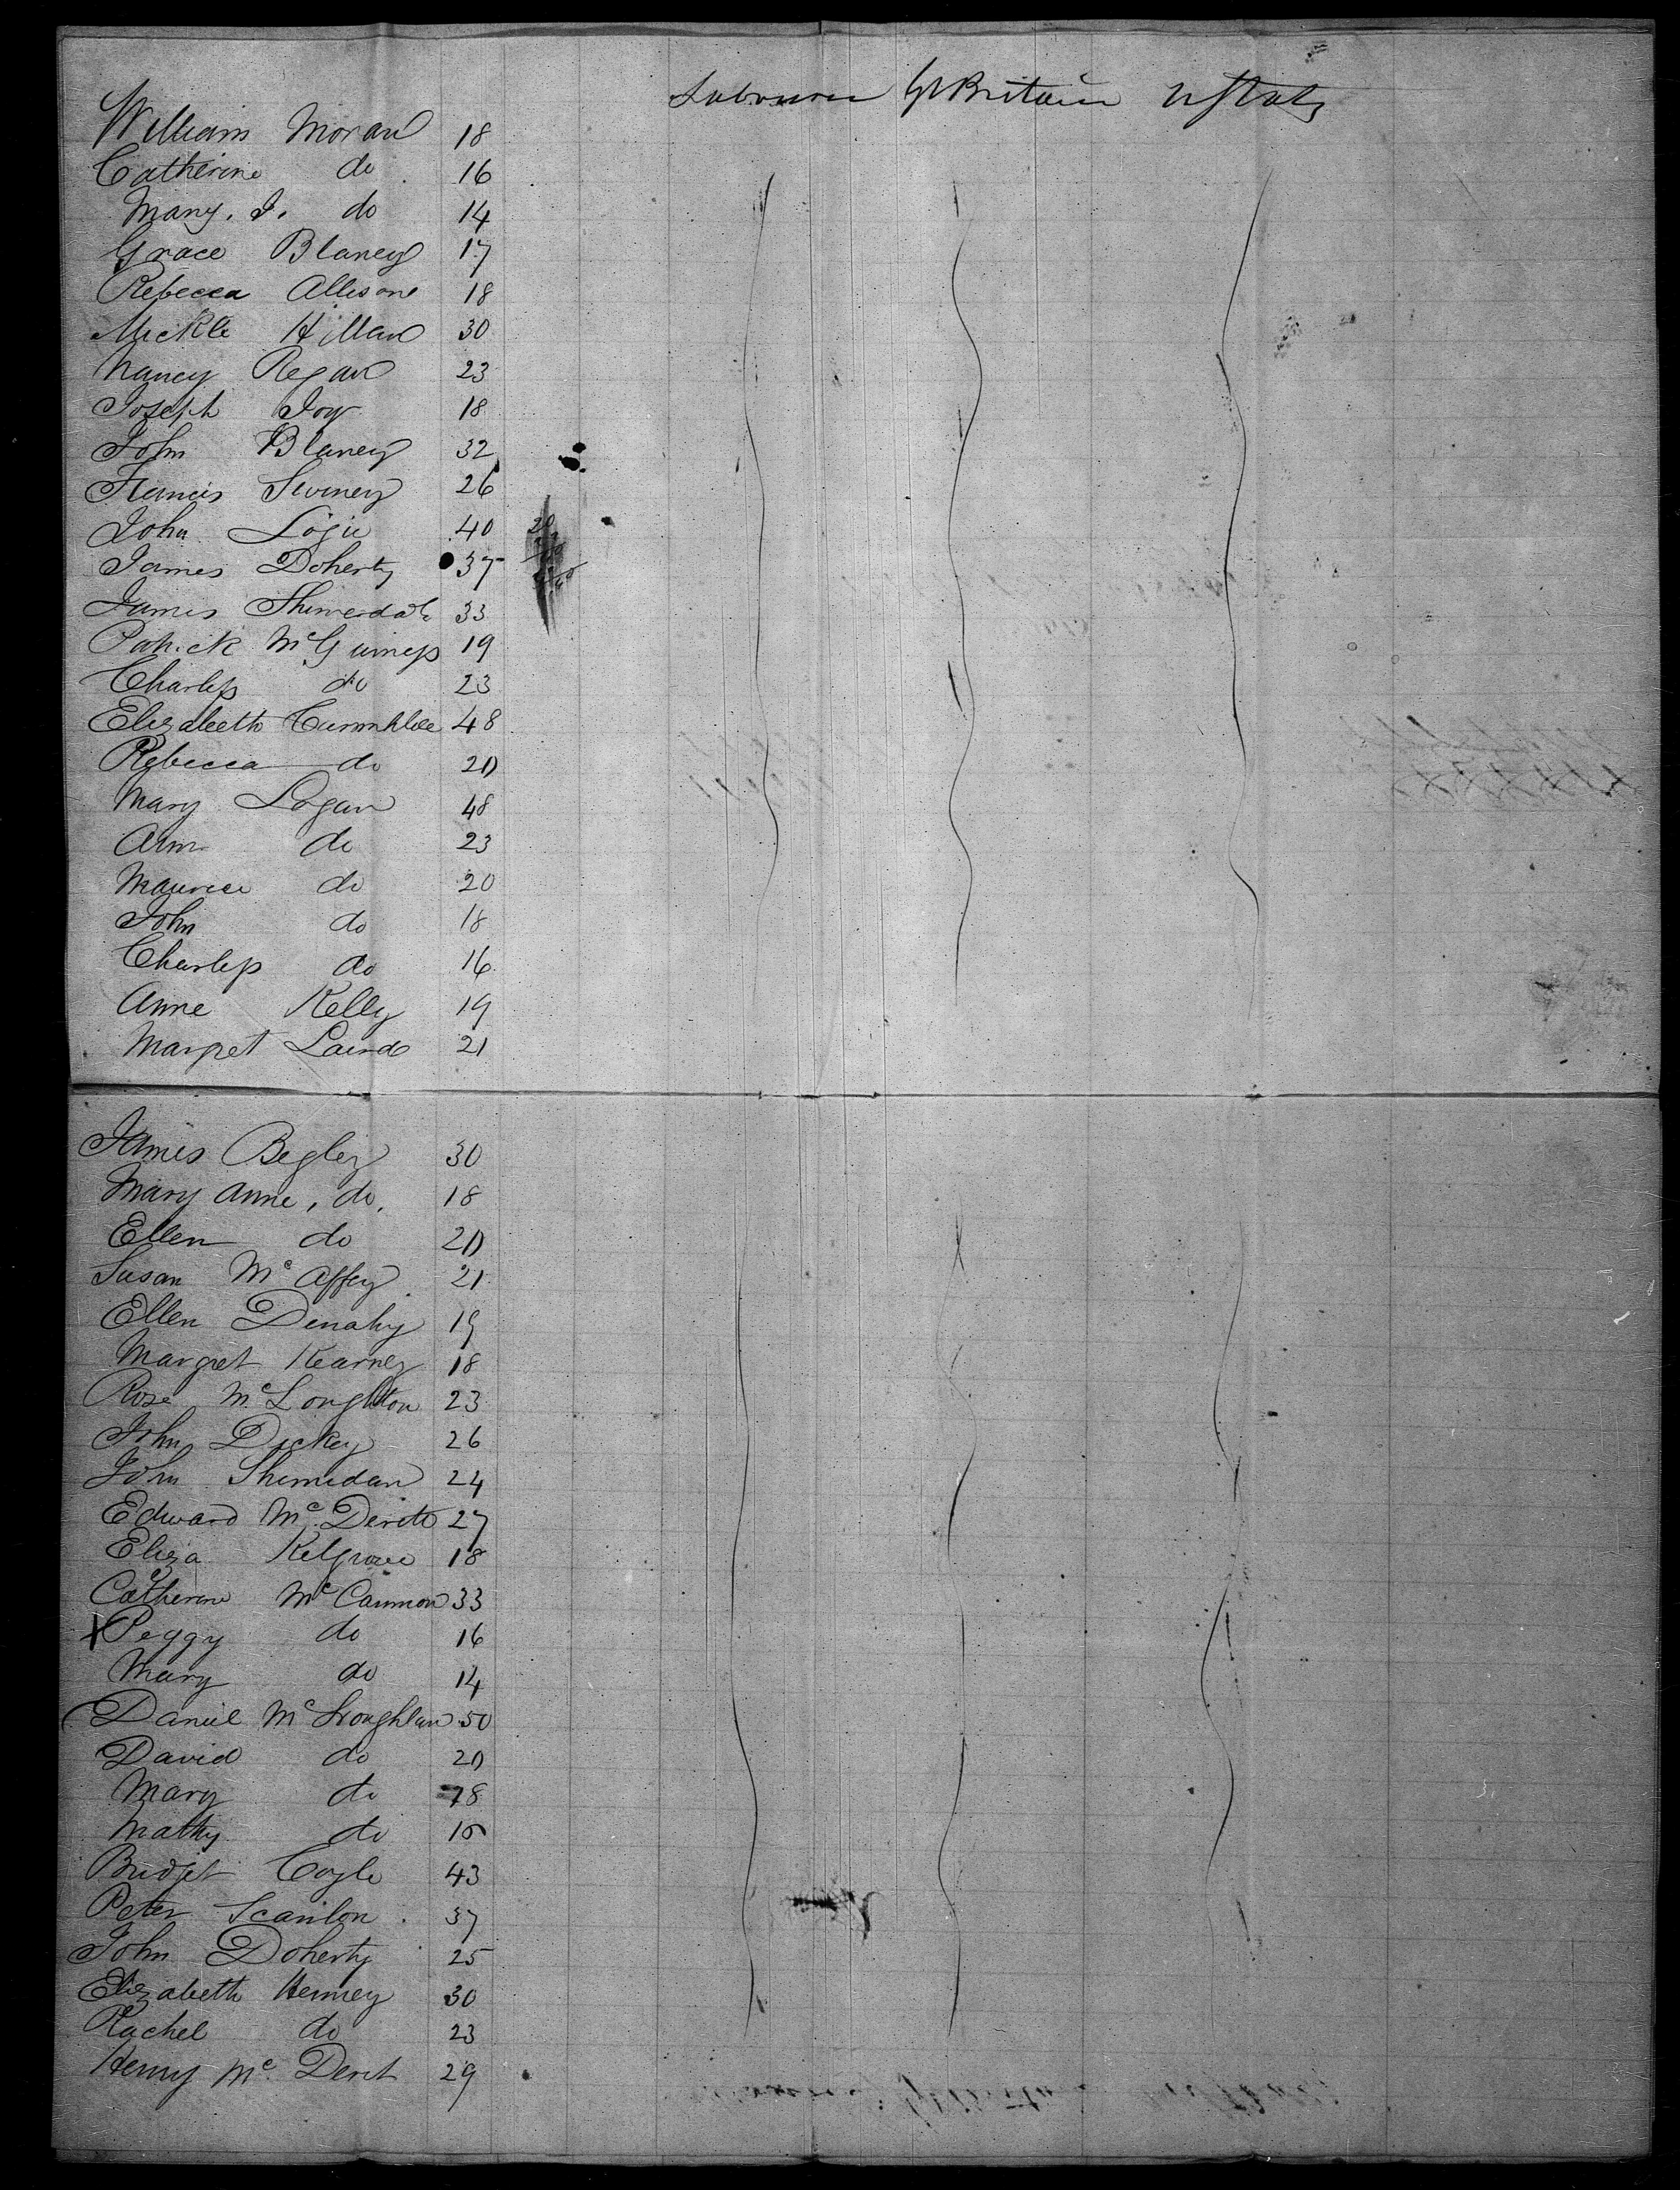 Labourer Gt Britain U States
William Moran 18
Catherine do 16
Mary. J. do 14
Grace Blaney 17
Rebecca Allison 18
Mickle Hillan 30
Nancy Regan 23
Joseph Joy 18
John Blaney 32
Francis Sweney 26
John Logie 40
James Doherty 37
James 33
Patrick McGuiness 19
Charles do 23
Elizabeth 48
Rebecca do 20
Mary Logan 48
Ann do 23
Maurice do 20
John do 18
Charles do 16
Anne Kelly 19
Margret Laird 21
James Begley 30
Mary Anne, do. 18
Ellen do 20
Susan McAffey 21
Ellen Denahy 19
Margret Kearney 18
Rose McLoughton 23
John Dickey 26
John 24
Edward McDevitt 27
Eliza 18
Catherine McCannon 33
X Peggy do 16
Mary do 14
Daniel McLoughlan 50
David do 20
Mary do 18
Mathy do
Bridget Coyle 43
Peter Scanlon 37
John Doherty 25
Elizabeth Henney 30
Rachel do 23
Henry McDevit 29